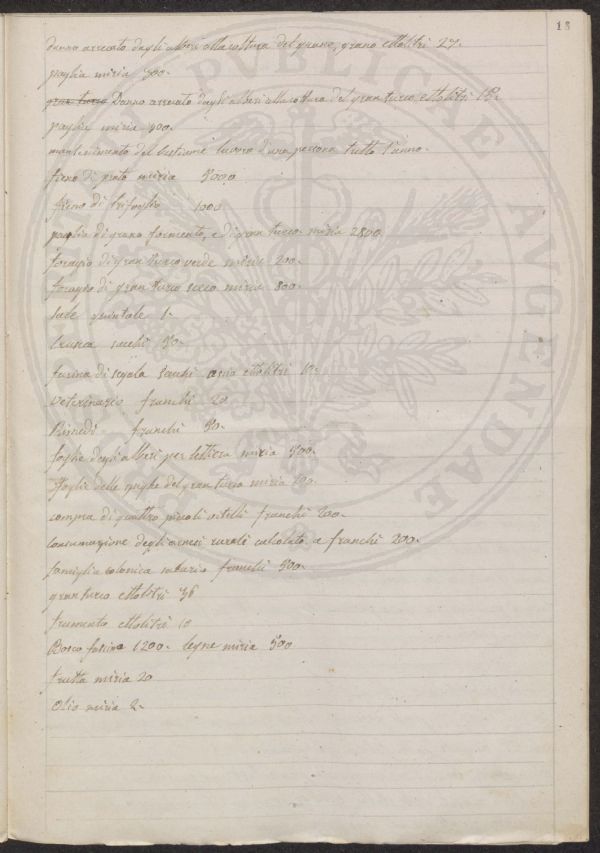 18
danno arrecato dagli alberi alla coltura del grano, grano ettolitri 27.
paglia miria 300.
gran turco Danno arrecato dagli alberi alla coltura del gran turco, ettolitri 18.
paglie miria 900.
mantenimento del bestiame lavoro d'una persona tutto l'anno.
fieno di prato miria 5000
fieno di trifoglio 1000
paglia di grano formento, e di gran turco miria 2800
foragio di gran turco verde miria 200.
foragio di gran turco secco miria 800.
Sale quintale 1.
Crusca sacchi 30.
farina di segala sacchi ossia ettolitri 10.
Veterinario franchi 20
Rimedi franchi 30.
foglie degli alberi per lettiera miria 500.
foglie delle spighe del gran turco miria 200.
compra di quattro piccoli vitelli franchi 200.
consumazione degli arnesi rurali calcolato a franchi 200.
famiglia colonica salario franchi 500.
gran turco ettolitri 36
frumento ettolitri 10
Bosco fascine 1200. legne miria 500
frutta miria 20
Olio miria 2.
PVBLICAE AVGENDAE